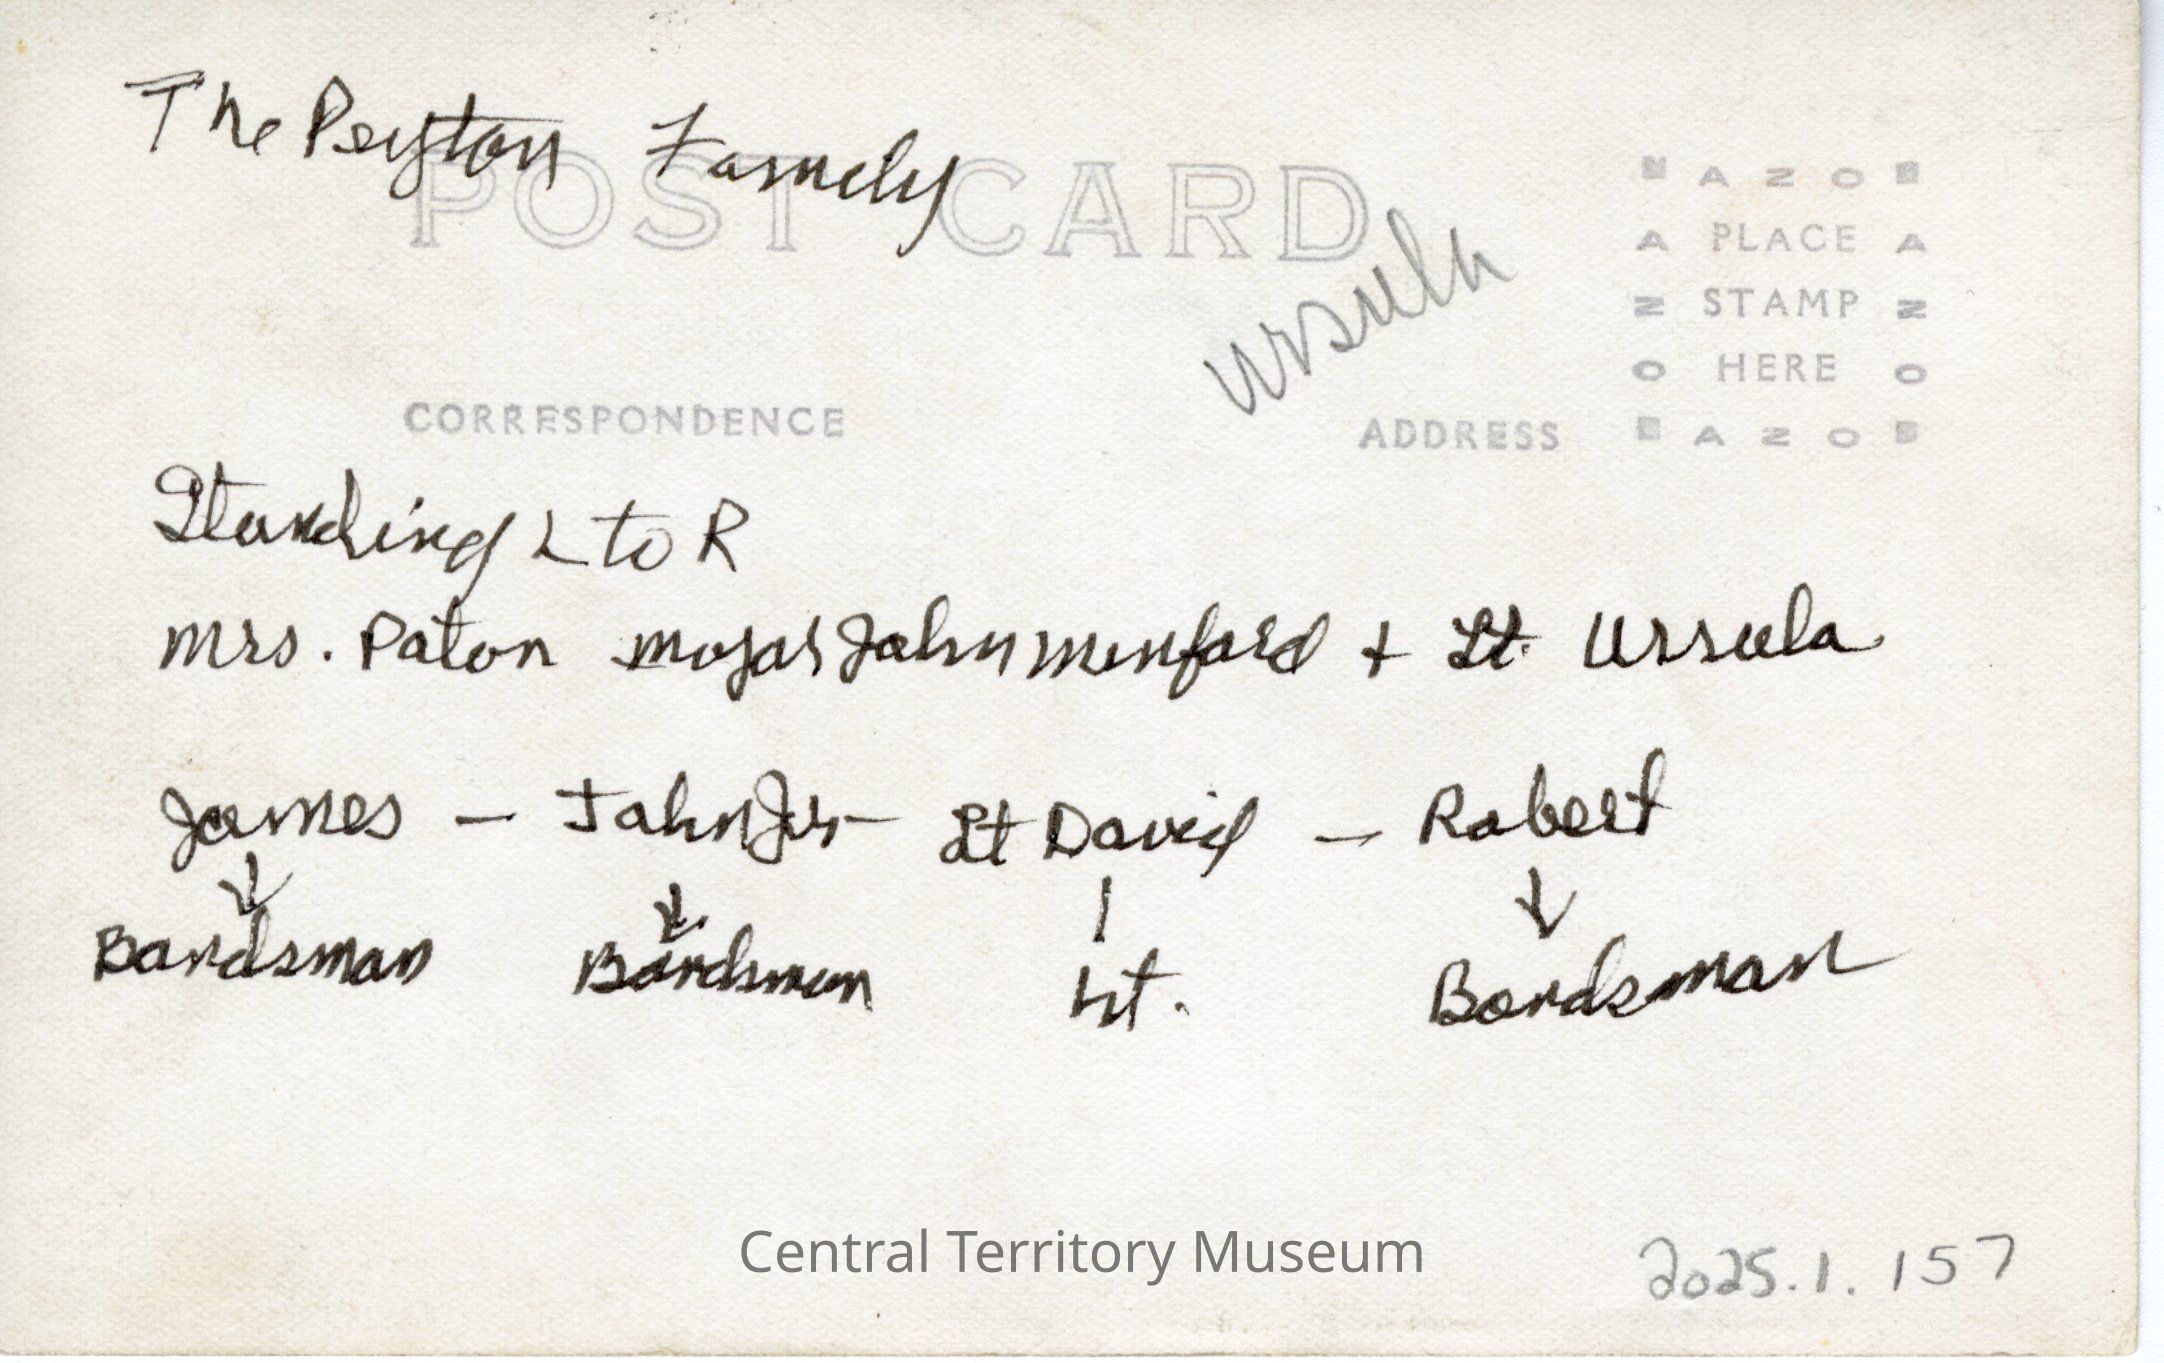 The Peyton Family
POST CARD
Ursula
AZO
A PLACE A
Z STAMP Z
O HERE O
AZO
CORRESPONDENCE
ADDRESS
Standing L to R
Mrs. Paton Major John Munford + Lt. Ursula
James — John Jr — Lt David — Robert
Bandsman Bandsman Lt. Bandsman
Central Territory Museum
2025.1.157